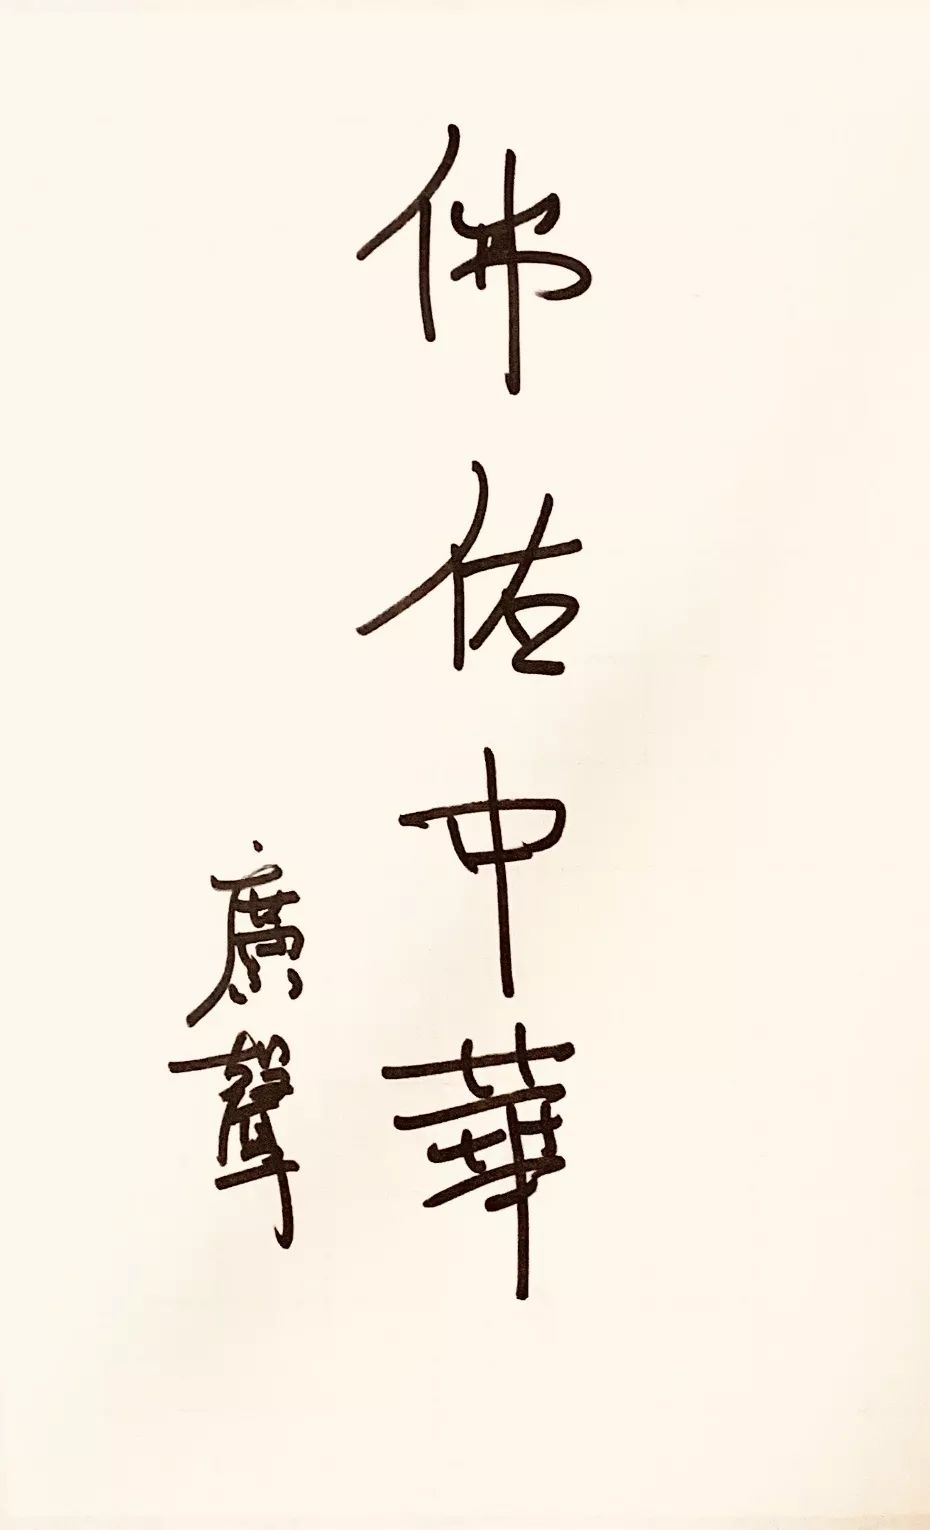 佛佑中華
廣聲